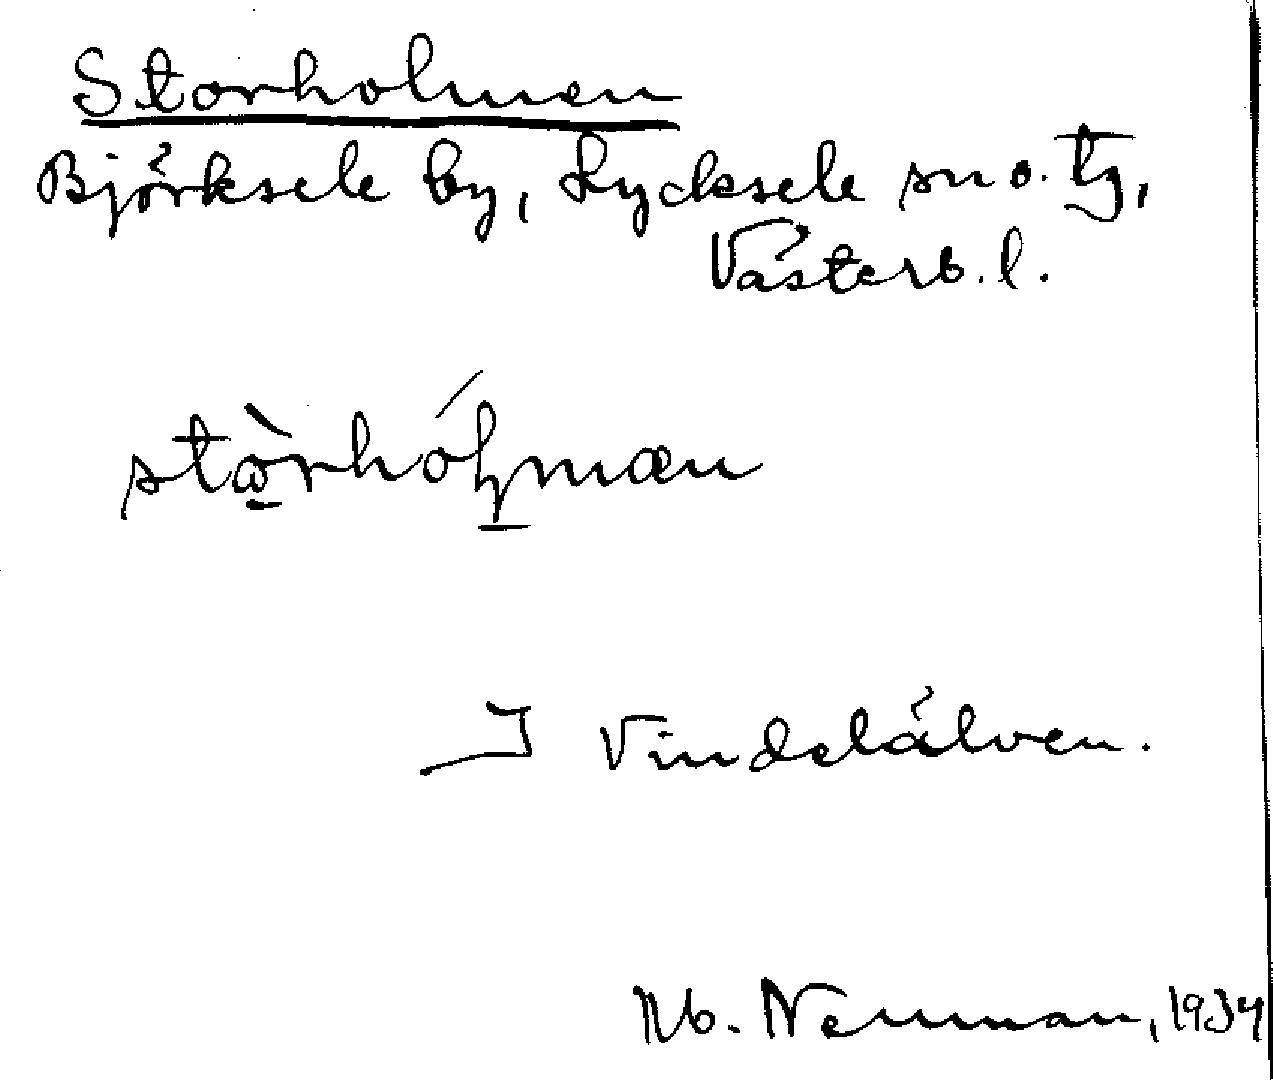 Storholmen
Björksele by, Lycksele sn o. tg,
Västerb. l.
I Vindelälven.
Nerman, 1934